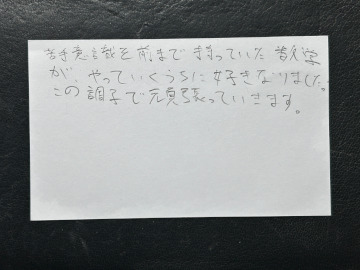 苦手意識を前まで持っていた数学
が、やっていくうちに好きなりました。
この調子で頑張っていきます。